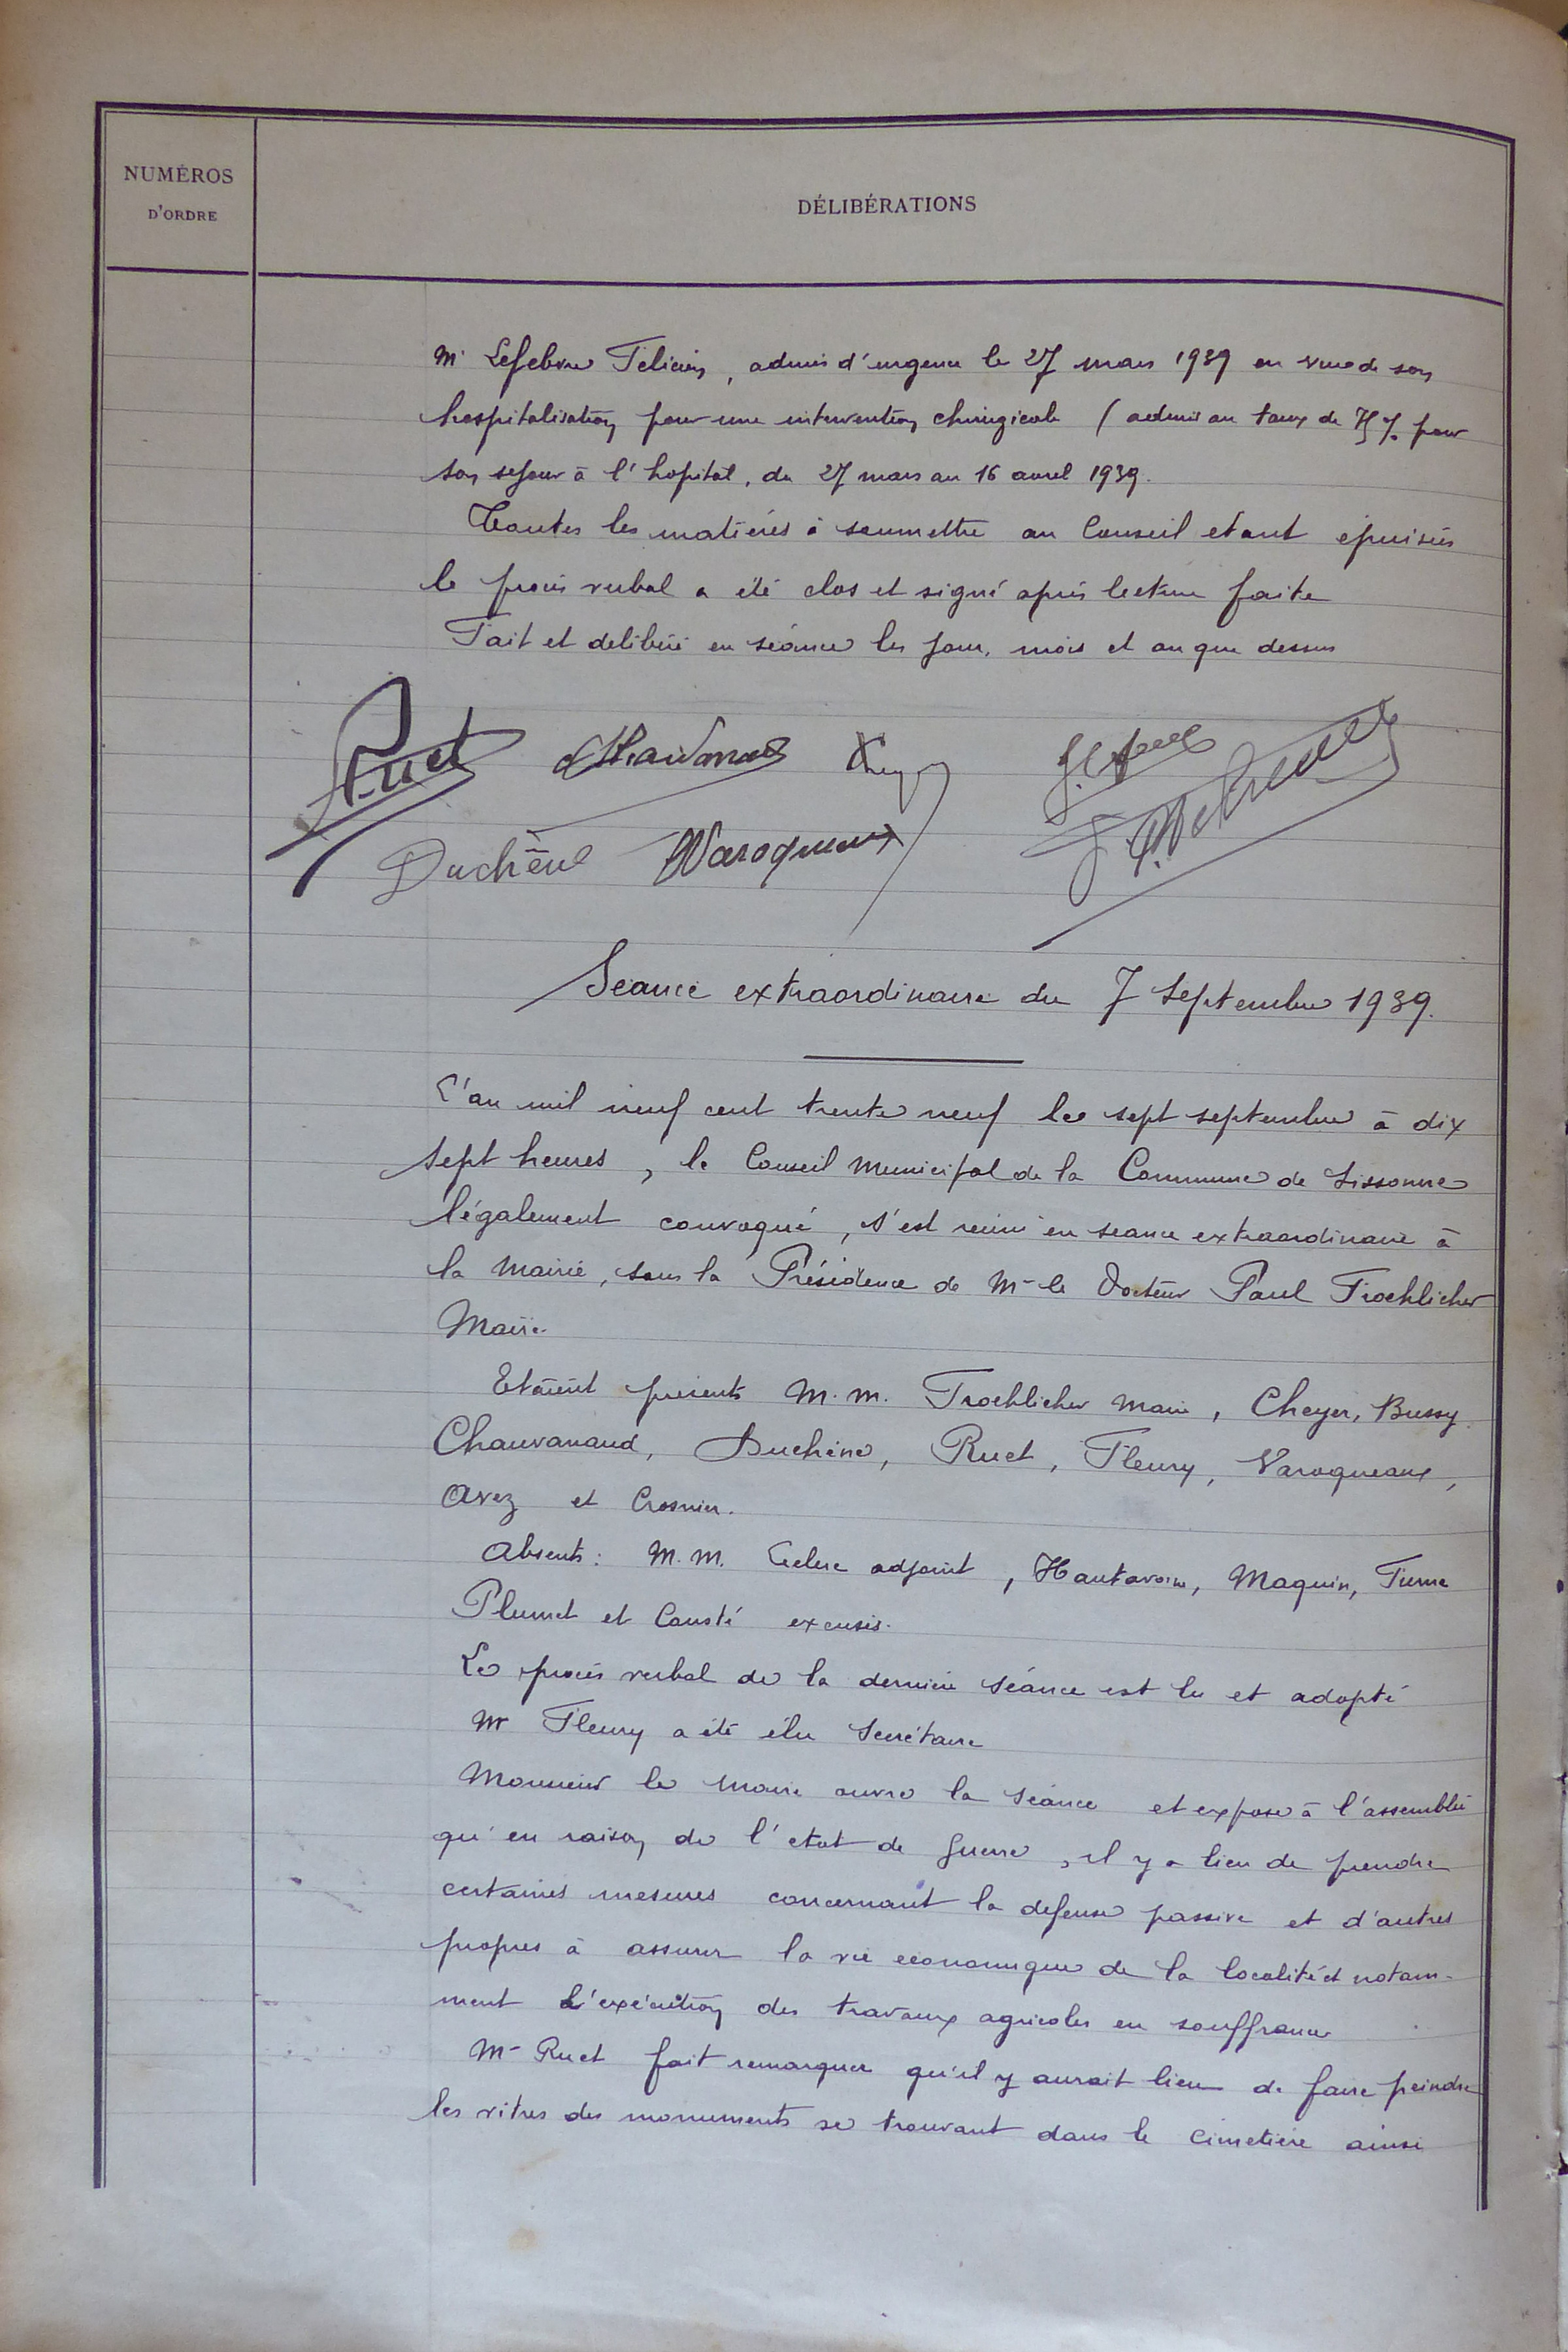 NUMÉROS
D'ORDRE
DÉLIBÉRATIONS
Mr Lefebvre Félicien, admis d'urgence le 27 mars 1939 en vue de son
hospitalisation pour une intervention chirurgicale (admis au taux de 75% pour
son sejour à l'hopital, du 27 mars au 16 avril 1939.
Toutes les matières à soumettre au Conseil etant épuisées
le procès verbal a été clos et signé après lecture faite
Fait et délibéré en séance les jour, mois et an que dessus
Ruet Chauvanaud
Duchêne Waroqueaux
Séance extraordinaire du 7 Septembre 1939.
L'an mil neuf cent trente neuf le sept septembre à dix
sept heures, le Conseil Municipal de la Commune de Sissonne
légalement convoqué, s'est réuni en seance extraordinaire à
la Mairie, sous la Présidence de Mr le Docteur Paul Froehlicher
Maire.
Etaient présents M.M. Froehlicher Maire, Cheyer, Bussy
Chauvanaud, Duchêne, Ruet, Fleury, Varoqueaux,
Avez et Crosnier.
Absents: M.M. Leclerc adjoint, Hautavoine, Maquin,
Plumet et Cousté excusés.
Le procès verbal de la dernière séance est lu et adopté
Mr Fleury a été élu Secrétaire
Monsieur le Maire ouvre la séance et expose à l'assemblée
qu'en raison de l'etat de guerre, il y a lieu de prendre
certaines mesures concernant la defense passive et d'autres
propres à assurer la vie economique de la localité et notam-
ment l'exécution des travaux agricoles en souffrance
Mr Ruet fait remarquer qu'il y aurait lieu de faire peindre
les vitres des monuments se trouvant dans le cimetière ainsi